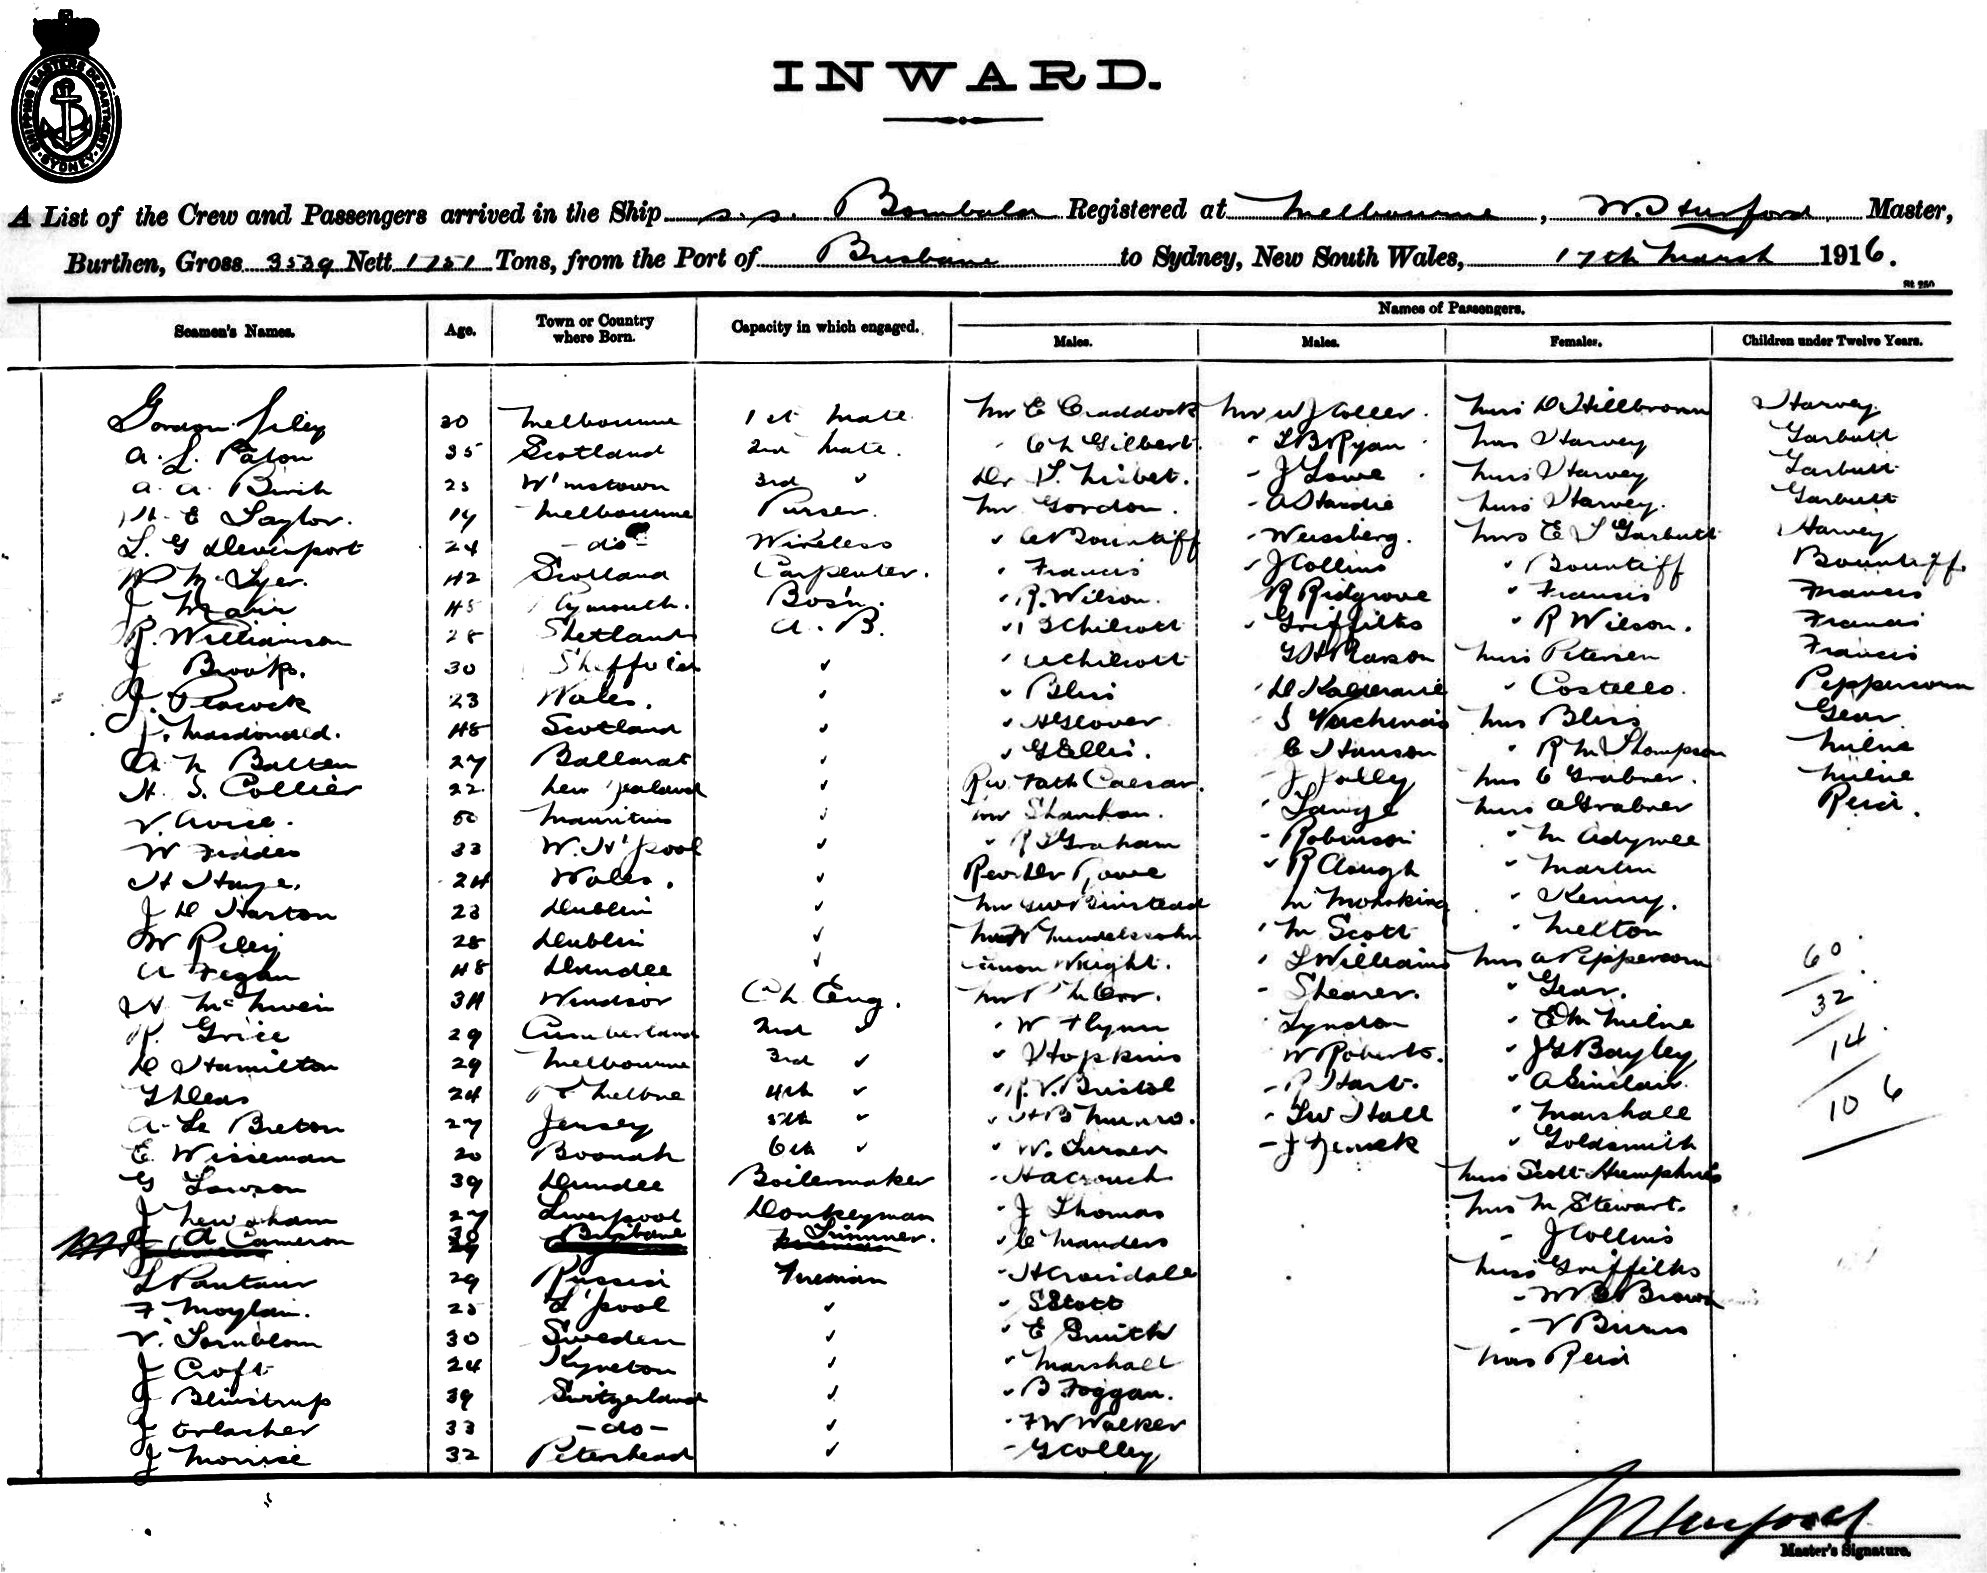 SHIPPING MASTERS DEPARTMENT SYDNEY
INWARD.
A List of the Crew and Passengers arrived in the Ship s.s. Bombala Registered at Melbourne, Master,
Burthen, Gross 3539 Nett Tons, from the Port of Brisbane to Sydney, New South Wales, 17th March 1916.
Names of Passengers.
Seamen's Names. Age. Town or Country where Born. Capacity in which engaged. Males. Males. Females. Children under Twelve Years.
Gordon 30 Melbourne 1st Mate Mr E Craddock Mr W J Coller. Miss D Hillbronn Harvey
A. L. Paton 35 Scotland 2nd Mate. " C L Gilbert " L B Ryan Mrs Harvey Garbutt
A. A. Birch W'mstown 3rd " Dr Nisbet. - J Lowe Miss Harvey Garbutt
E Taylor. 19 Melbourne Purser. Mr Gordon. - A Hardie Miss Harvey. Garbutt
L. G Devenport 24 -do- Wireless " Bountiff - Weissberg. Mrs E Garbutt Harvey
42 Scotland Carpenter. " Francis " J Collins " Bountiff Bountiff
J Mair 45 Plymouth. Bos'n. " R. Wilson. R Ridgrove " Francis Francis
R. Williamson 28 Shetlands A. B. " Chilcott " Griffiths " R Wilson. Francis
J Brooks. 30 Sheffield " " Chilcott Miss Petersen Francis
J. Peacock 23 Wales. " " Bliss " Costello. Peppercorn
J. Macdonald. 48 Scotland " " H Glover Mrs Bliss Gear
A M Batten 27 Ballarat " " G Ellis. C Hanson " R M Thompson Milne
H. S. Collier 22 New Zealand " Rev. Fath Caesar. - J Jolly Mrs C Grabner. Milne
V. Avice. 50 Mauritius " Mr Shanahan. " Lange Miss A Grabner Reid.
W Fiddes 33 W. H'pool " " Graham - Robinson " M
H 24 Wales. " Rev Dr Rowe " R Clough " Martin
J D Harton 23 Dublin " Mr Binstead " Kenny.
W Riley 28 Dublin " Mendelssohn " M Scott " Melton
A Fegan 48 Dundee " Canon Wright. " L Williams Mrs A Peppercorn 60
34 Windsor Ch Eng. Mr Orr. - Shearer. " Gear. 32
R. Grice 29 Cumberland 2nd " " W Flynn " Lyndon " E M Milne 14
D Hamilton 29 Melbourne 3rd " " Hopkins W Roberts. " J G Bayley
24 Melbne 4th " " R. V. Bristol - R Hart. " A Sinclair. 106
A. Le Breton 27 Jersey 5th " " H B Munro. - Hall " Marshall
E. Wisseman 20 Boonah 6th " " W. Turner - J " Goldsmith
G Lawson 39 Dundee Boilermaker - H A Crouch Miss Scott Humphries
J Newsham 27 Liverpool Donkeyman - J Thomas Mrs M Stewart.
A Cameron 30 Brisbane Trimmer. " C Manders - J Collins
29 Russia Fireman Miss Griffiths
F Moylan. L'pool " " S Stott - Brown
V. 30 Sweden " " E Smith - V Burns
J Croft 24 Kyneton " " Marshall Mrs Reid
J Blinstrup 39 Switzerland " " B Foggan.
J Erlacher 33 -do- " - F W Walker
J 32 Peterhead " - G Colley
Master's Signature.